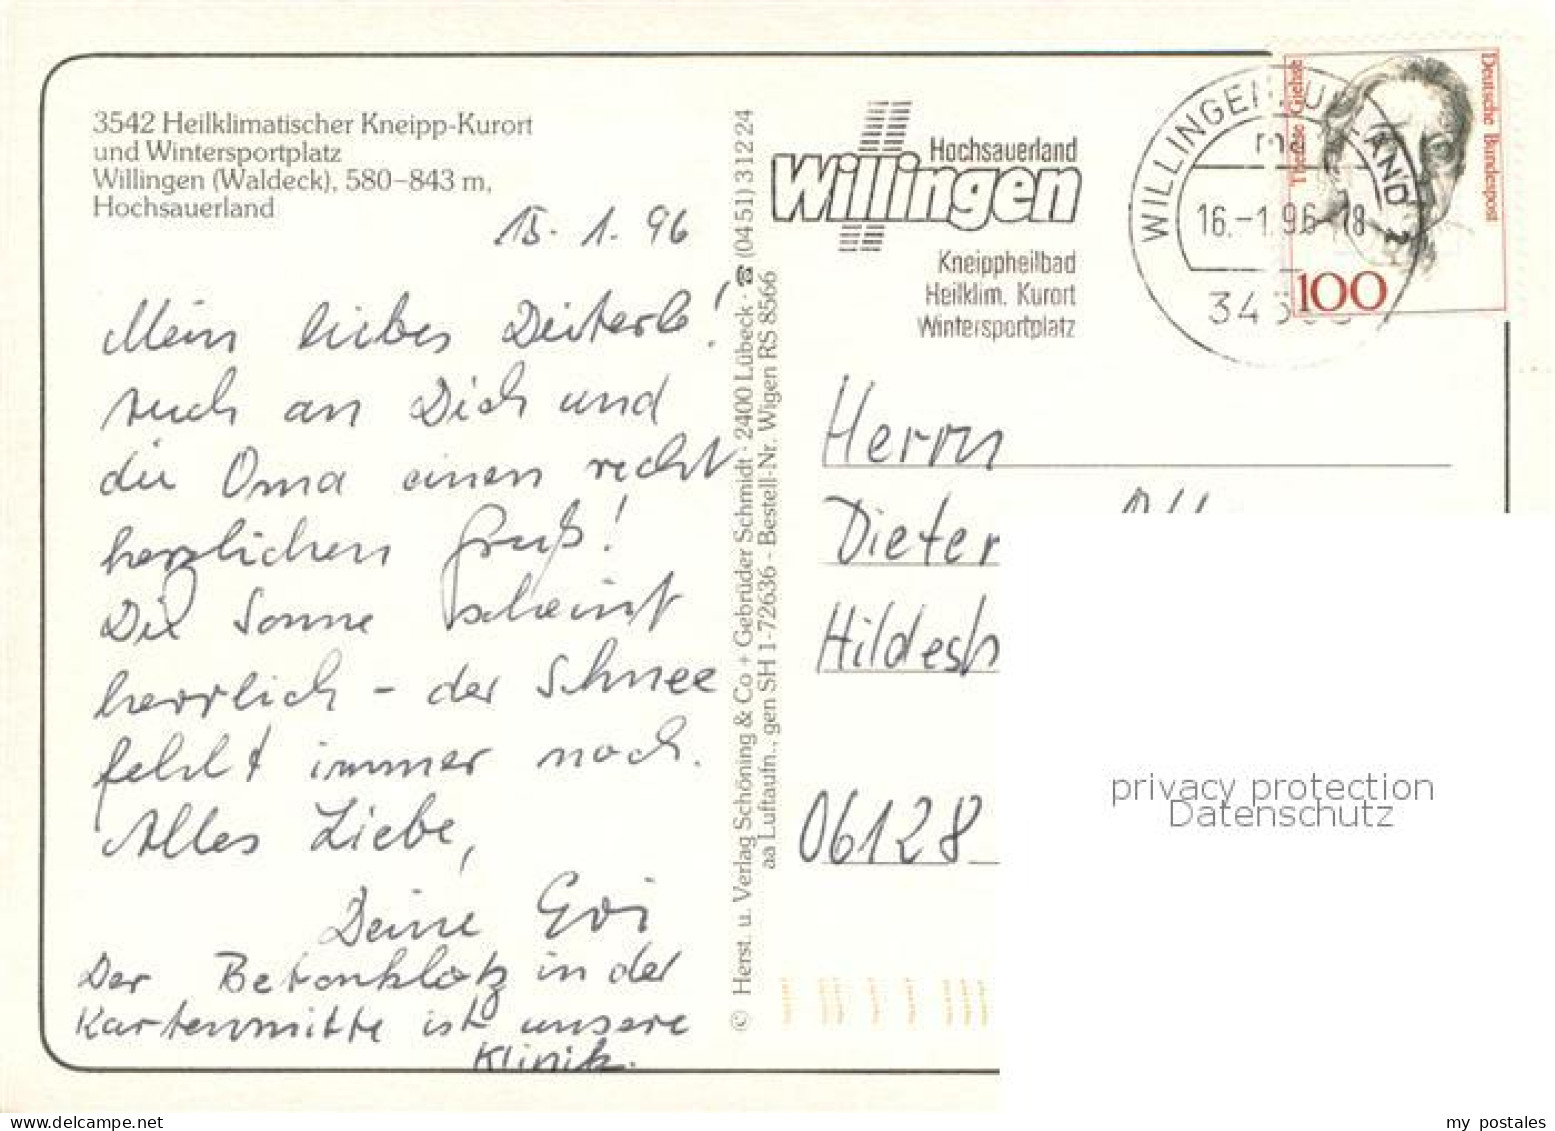 3542 Heilklimatischer Kneipp-Kurort
und Wintersportplatz
Willingen (Waldeck), 580–843 m,
Hochsauerland
15. 1. 96
Mein liebes Dieterle!
Auch an Dich und
die Oma einen recht
herzlichen Gruß!
Die Sonne scheint
herrlich – der Schnee
fehlt immer noch.
Alles Liebe,
Deine Evi
Der Betonklotz in der
Kartenmitte ist unsere
Klinik.
© Herst. u. Verlag Schöning & Co + Gebrüder Schmidt · 2400 Lübeck · ☎ (04 51) 3 12 24
aa Luftaufn., gen SH 1-72636 - Bestell-Nr. Wigen RS 8566
Hochsauerland
Willingen
Kneippheilbad
Heilklim. Kurort
Wintersportplatz
WILLINGEN, UPLAND
16.-1.96-18
Therese Giehse
Deutsche Bundespost
100
Herrn
Dieter
Hildesh
06128
privacy protection
Datenschutz
my postales